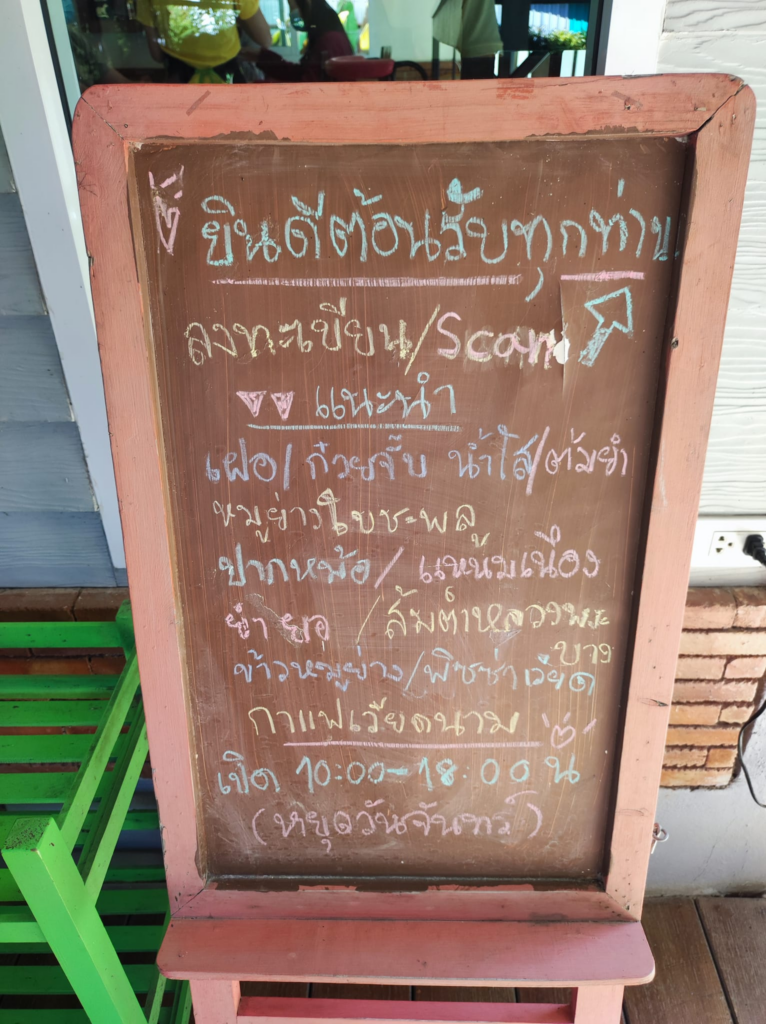 ยินดีต้อนรับทุกท่าน
ลงทะเบียน/Scan
แนะนำ
เฝอ/ก๋วยจั๊บ น้ำใส/ต้มยำ
หมูย่างใบชะพลู
ปากหม้อ/แหนมเนือง
ยำ ยอ /ส้มตำหลวงพระ
บาง
ข้าวหมูย่าง/พิซซ่าเวียด
กาแฟเวียดนาม
เปิด 10:00-18:00 น
(หยุดวันจันทร์)